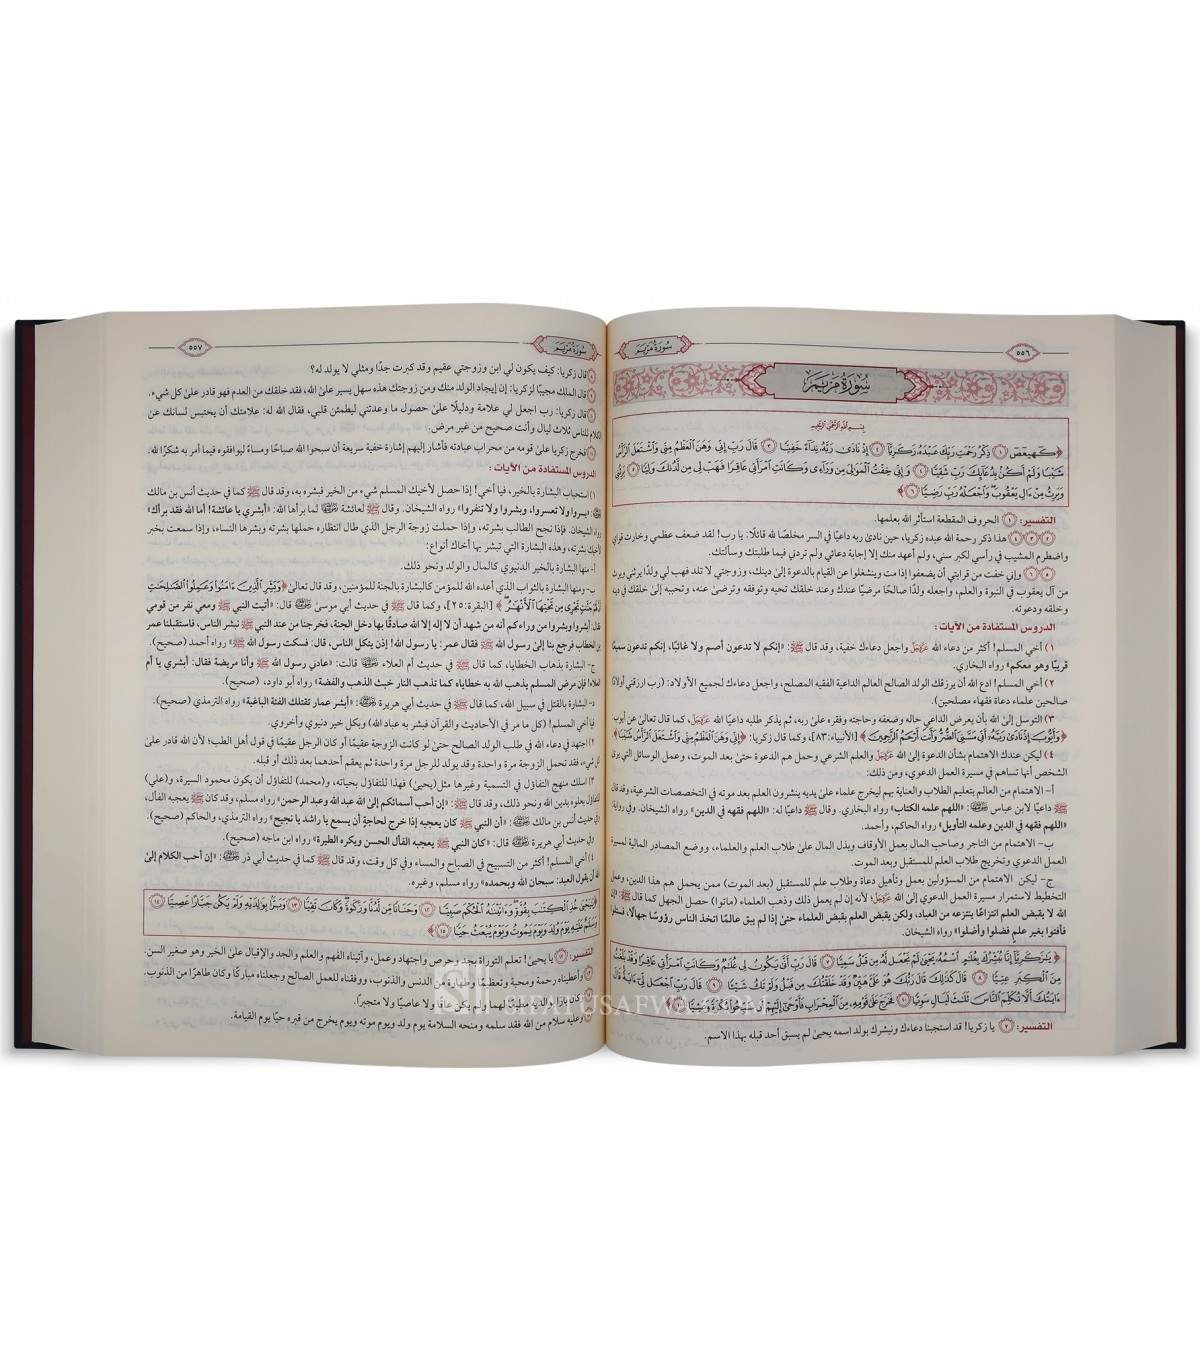 سورة مريم
٥٥٦
سورة مريم
بسم الله الرحمن الرحيم
﴿كٓهيعٓصٓ ١ ذِكْرُ رَحْمَتِ رَبِّكَ عَبْدَهُۥ زَكَرِيَّآ ٢ إِذْ نَادَىٰ رَبَّهُۥ نِدَآءً خَفِيًّا ٣ قَالَ رَبِّ إِنِّي وَهَنَ ٱلْعَظْمُ مِنِّي وَٱشْتَعَلَ ٱلرَّأْسُ
شَيْبًا وَلَمْ أَكُنۢ بِدُعَآئِكَ رَبِّ شَقِيًّا ٤ وَإِنِّي خِفْتُ ٱلْمَوَٰلِيَ مِن وَرَآءِي وَكَانَتِ ٱمْرَأَتِي عَاقِرًا فَهَبْ لِي مِن لَّدُنكَ وَلِيًّا ٥ يَرِثُنِي
وَيَرِثُ مِنْ ءَالِ يَعْقُوبَ وَٱجْعَلْهُ رَبِّ رَضِيًّا ٦﴾
التفسير: ١ الحروف المقطعة استأثر الله بعلمها.
٢ ٣ ٤ هذا ذكر رحمة الله عبده زكريا، حين نادى ربه داعيًا في السر مخلصًا لله قائلًا: يا رب! لقد ضعف عظمي وخارت قواي
واضطرم المشيب في رأسي لكبر سني، ولم أعهد منك إلا إجابة دعائي ولم تردني فيما طلبتك وسألتك.
٥ ٦ وإني خفت من قرابتي أن يضعفوا إذا مت وينشغلوا عن القيام بالدعوة إلى دينك، وزوجتي لا تلد فهب لي ولدًا يرثني ويرث
من آل يعقوب في النبوة والعلم، واجعله ولدًا صالحًا مرضيًا عندك وعند خلقك تحبه وتوفقه وترضى عنه، وتحببه إلى خلقك في دينه
وخلقه ودعوته.
الدروس المستفادة من الآيات:
١) أخي المسلم! أكثر من دعاء الله عَزَّوَجَلَّ واجعل دعاءك خفية، وقد قال ﷺ: «إنكم لا تدعون أصم ولا غائبًا، إنكم تدعون سميعًا
قريبًا وهو معكم» رواه البخاري.
٢) أخي المسلم! ادع الله أن يرزقك الولد الصالح العالم الداعية الفقيه المصلح، واجعل دعاءك لجميع الأولاد: (رب ارزقني أولادًا
صالحين علماء دعاة فقهاء مصلحين).
٣) التوسل إلى الله بأن يعرض الداعي حاله وضعفه وحاجته وفقره على ربه، ثم يذكر طلبه داعيًا الله عَزَّوَجَلَّ، كما قال تعالى عن أيوب
﴿وَأَيُّوبَ إِذْ نَادَىٰ رَبَّهُۥٓ أَنِّي مَسَّنِيَ ٱلضُّرُّ وَأَنتَ أَرْحَمُ ٱلرَّٰحِمِينَ﴾ [الأنبياء:٨٣]، وكما قال زكريا: ﴿إِنِّي وَهَنَ ٱلْعَظْمُ مِنِّي وَٱشْتَعَلَ ٱلرَّأْسُ شَيْبًا﴾
٤) ليكن عندك الاهتمام بشأن الدعوة إلى الله عَزَّوَجَلَّ والعلم الشرعي وحمل هم الدعوة حتى بعد الموت، وعمل الوسائل التي يرى
الشخص أنها تساهم في مسيرة العمل الدعوي، ومن ذلك:
أ- الاهتمام من العالم بتعليم الطلاب والعناية بهم ليخرج علماء على يديه ينشرون العلم بعد موته في التخصصات الشرعية، وقد قال
ﷺ داعيًا لابن عباس: «اللهم علمه الكتاب» رواه البخاري. وقال ﷺ داعيًا له: «اللهم فقهه في الدين» رواه الشيخان. وفي رواية:
«اللهم فقهه في الدين وعلمه التأويل» رواه الحاكم، وأحمد.
ب- الاهتمام من التاجر وصاحب المال بعمل الأوقاف وبذل المال على طلاب العلم والعلماء، ووضع المصادر المالية لمسيرة
العمل الدعوي وتخريج طلاب العلم للمستقبل وبعد الموت.
ج- ليكن الاهتمام من المسؤولين بعمل وتأهيل دعاة وطلاب علم للمستقبل (بعد الموت) ممن يحمل هم هذا الدين، وعمل
التخطيط لاستمرار مسيرة العمل الدعوي إلى الله عَزَّوَجَلَّ؛ لأنه إن لم يعمل ذلك وذهب العلماء (ماتوا) حصل الجهل كما قال ﷺ: «إن
الله لا يقبض العلم انتزاعًا ينتزعه من العباد، ولكن يقبض العلم بقبض العلماء حتى إذا لم يبق عالمًا اتخذ الناس رؤوسًا جهالًا، فسئلوا
فأفتوا بغير علم فضلوا وأضلوا» رواه الشيخان.
﴿يَٰزَكَرِيَّآ إِنَّا نُبَشِّرُكَ بِغُلَٰمٍ ٱسْمُهُۥ يَحْيَىٰ لَمْ نَجْعَل لَّهُۥ مِن قَبْلُ سَمِيًّا ٧ قَالَ رَبِّ أَنَّىٰ يَكُونُ لِي غُلَٰمٌ وَكَانَتِ ٱمْرَأَتِي عَاقِرًا وَقَدْ بَلَغْتُ
مِنَ ٱلْكِبَرِ عِتِيًّا ٨ قَالَ كَذَٰلِكَ قَالَ رَبُّكَ هُوَ عَلَيَّ هَيِّنٌ وَقَدْ خَلَقْتُكَ مِن قَبْلُ وَلَمْ تَكُ شَيْـًٔا ٩ قَالَ رَبِّ ٱجْعَل لِّيٓ ءَايَةً قَالَ
ءَايَتُكَ أَلَّا تُكَلِّمَ ٱلنَّاسَ ثَلَٰثَ لَيَالٍ سَوِيًّا ١٠ فَخَرَجَ عَلَىٰ قَوْمِهِۦ مِنَ ٱلْمِحْرَابِ فَأَوْحَىٰٓ إِلَيْهِمْ أَن سَبِّحُوا۟ بُكْرَةً وَعَشِيًّا ١١﴾
التفسير: ٧ يا زكريا! قد استجبنا دعاءك ونبشرك بولد اسمه يحيى لم يسبق أحد قبله بهذا الاسم.
سورة مريم
٥٥٧
٨ قال زكريا: كيف يكون لي ابن وزوجتي عقيم وقد كبرت جدًا ومثلي لا يولد له؟
٩ قال الملك مجيبًا لزكريا: إن إيجاد الولد منك ومن زوجتك هذه سهل يسير على الله، فقد خلقك من العدم فهو قادر على كل شيء.
١٠ قال زكريا: رب اجعل لي علامة ودليلًا على حصول ما وعدتني ليطمئن قلبي، فقال الله له: علامتك أن يحتبس لسانك عن
الكلام للناس ثلاث ليال وأنت صحيح من غير مرض.
١١ فخرج زكريا على قومه من محراب عبادته فأشار إليهم إشارة خفية سريعة أن سبحوا الله صباحًا ومساءً ليوافقوه فيما أمر به شكرًا لله.
الدروس المستفادة من الآيات:
١) استحباب البشارة بالخير، فيا أخي! إذا حصل لأخيك المسلم شيء من الخير فبشره به، وقد قال ﷺ كما في حديث أنس بن مالك
: «يسروا ولا تعسروا، وبشروا ولا تنفروا» رواه الشيخان. وقال ﷺ لعائشة لما برأها الله: «أبشري يا عائشة! أما الله فقد برأك»
رواه الشيخان. فإذا نجح الطالب بشرته، وإذا حملت زوجة الرجل الذي طال انتظاره حملها بشرته وبشرها النساء، وإذا سمعت بخبر
أخيك بشرته، وهذه البشارة التي تبشر بها أخاك أنواع:
أ- منها البشارة بالخير الدنيوي كالمال والولد ونحو ذلك.
ب- ومنها البشارة بالثواب الذي أعده الله للمؤمن كالبشارة بالجنة للمؤمنين، وقد قال تعالى: ﴿وَبَشِّرِ ٱلَّذِينَ ءَامَنُوا۟ وَعَمِلُوا۟ ٱلصَّٰلِحَٰتِ
أَنَّ لَهُمْ جَنَّٰتٍ تَجْرِي مِن تَحْتِهَا ٱلْأَنْهَٰرُ﴾ [البقرة:٢٥]، وكما قال ﷺ في حديث أبي موسى قال: «أتيت النبي ﷺ ومعي نفر من قومي
فقال: أبشروا وبشروا من وراءكم أنه من شهد أن لا إله إلا الله صادقًا بها دخل الجنة، فخرجنا من عند النبي ﷺ نبشر الناس، فاستقبلنا عمر
بن الخطاب فرجع بنا إلى رسول الله ﷺ فقال عمر: يا رسول الله! إذن يتكل الناس، قال: فسكت رسول الله ﷺ» رواه أحمد (صحيح).
ج- البشارة بذهاب الخطايا، كما قال ﷺ في حديث أم العلاء قالت: «عادني رسول الله ﷺ وأنا مريضة فقال: أبشري يا أم
العلاء! فإن مرض المسلم يذهب الله به خطاياه كما تذهب النار خبث الذهب والفضة» رواه أبو داود، (صحيح).
د- البشارة بالقتل في سبيل الله، كما قال ﷺ في حديث أبي هريرة: «أبشر عمار تقتلك الفئة الباغية» رواه الترمذي (صحيح).
فيا أخي المسلم! (كل ما مر في الأحاديث والقرآن فبشر به عباد الله) وبكل خير دنيوي وأخروي.
٢) اجتهد في دعاء الله في طلب الولد الصالح حتى لو كانت الزوجة عقيمًا أو كان الرجل عقيمًا في قول أهل الطب؛ لأن الله قادر على
كل شيء، فقد تحمل الزوجة مرة واحدة وقد يولد للرجل مرة واحدة ثم يعقم أحدهما بعد ذلك أو قبله.
٣) اسلك منهج التفاؤل في التسمية وغيرها مثل (يحيى) فهذا للتفاؤل بحياته، (محمد) للتفاؤل أن يكون محمود السيرة، (علي)
للتفاؤل بعلوه بدين الله ونحو ذلك، وقد قال ﷺ: «إن أحب أسمائكم إلى الله عبد الله وعبد الرحمن» رواه مسلم، وقد كان ﷺ يعجبه الفأل،
وفي حديث أنس بن مالك: «أن النبي ﷺ كان يعجبه إذا خرج لحاجةٍ أن يسمع يا راشد يا نجيح» رواه الترمذي، والحاكم (صحيح).
وفي حديث أبي هريرة قال: «كان النبي ﷺ يعجبه الفأل الحسن ويكره الطيرة» رواه ابن ماجه (صحيح).
٤) أخي المسلم! أكثر من التسبيح في الصباح والمساء وفي كل وقت، وقد قال ﷺ كما في حديث أبي ذر: «إن أحب الكلام إلى
الله أن يقول العبد: سبحان الله وبحمده» رواه مسلم، وغيره.
﴿يَٰيَحْيَىٰ خُذِ ٱلْكِتَٰبَ بِقُوَّةٍ وَءَاتَيْنَٰهُ ٱلْحُكْمَ صَبِيًّا ١٢ وَحَنَانًا مِّن لَّدُنَّا وَزَكَوٰةً وَكَانَ تَقِيًّا ١٣ وَبَرًّۢا بِوَٰلِدَيْهِ وَلَمْ يَكُن جَبَّارًا عَصِيًّا ١٤
وَسَلَٰمٌ عَلَيْهِ يَوْمَ وُلِدَ وَيَوْمَ يَمُوتُ وَيَوْمَ يُبْعَثُ حَيًّا ١٥﴾
التفسير: ١٢ يا يحيى! تعلم التوراة بجد وحرص واجتهاد وعمل، وآتيناه الفهم والعلم والجد والإقبال على الخير وهو صغير السن.
١٣ وأعطيناه رحمة ومحبة وتعطفًا وطهارة من الدنس والذنوب، ووفقناه للعمل الصالح وجعلناه مباركًا وكان طاهرًا من الذنوب.
١٤ وكان بارًا بوالديه مطيعًا لهما ولم يكن عاقًا ولا عاصيًا ولا متجبرًا.
١٥ وعليه سلام من الله فقد سلمه ومنحه السلامة يوم ولد ويوم موته ويوم يخرج من قبره حيًا يوم القيامة.
SIFATUSAFWA.COM